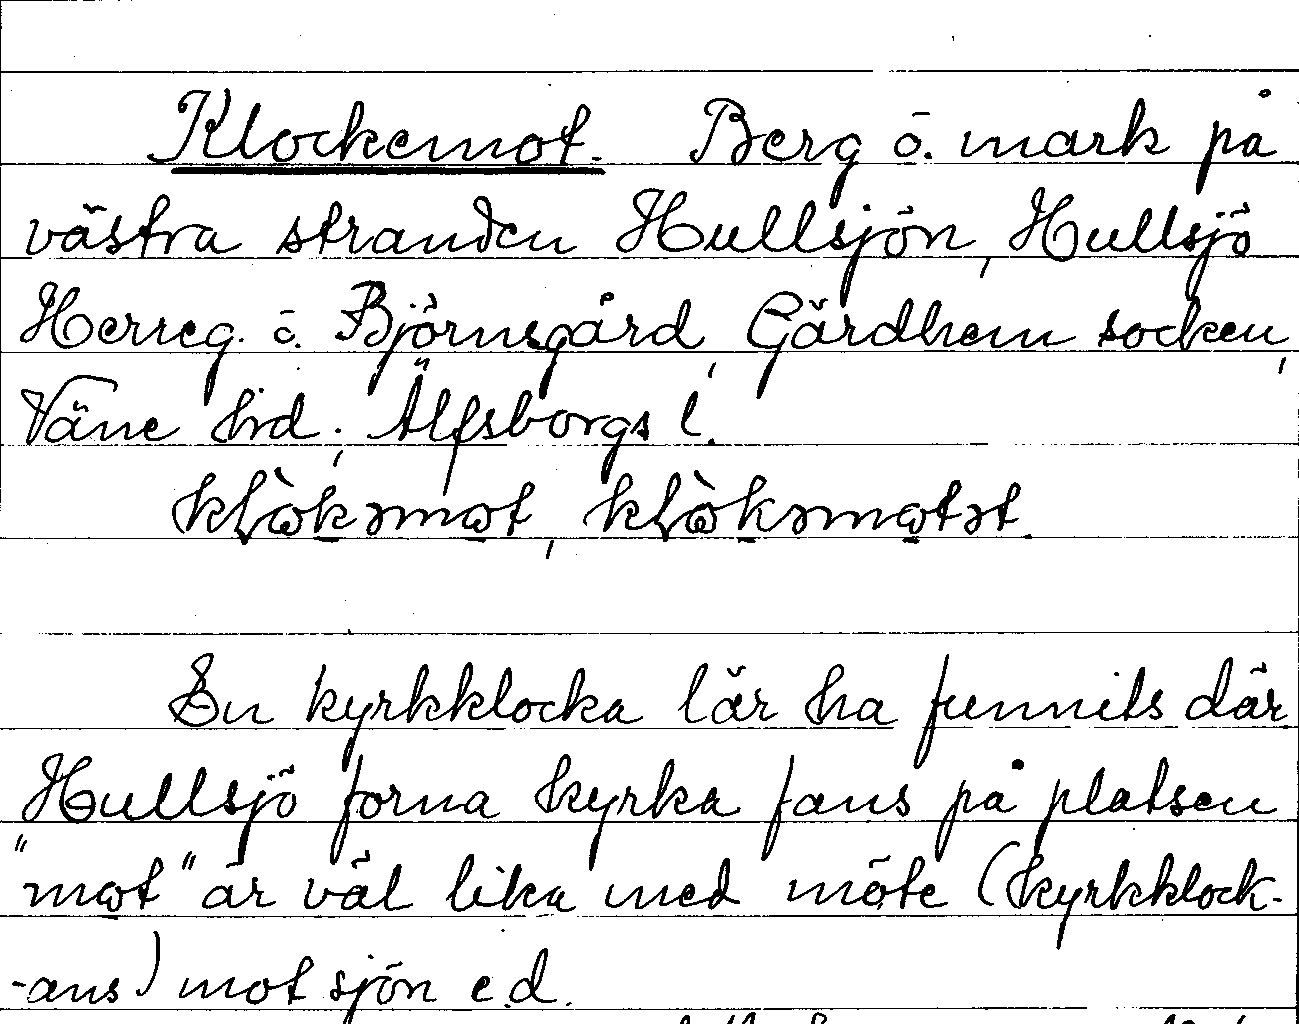 Klockemot. Berg ö. mark på
västra stranden Hullsjön, Hullsjö
Herreg. ö. Björnsgård, Gärdhem socken,
Väne hrd; Älfsborgs l.
En kyrkklocka lär ha funnits där
Hullsjö forna kyrka fans på platsen
"mot" är väl lika med möte (kyrkklock-
-ans) mot sjön e.d.